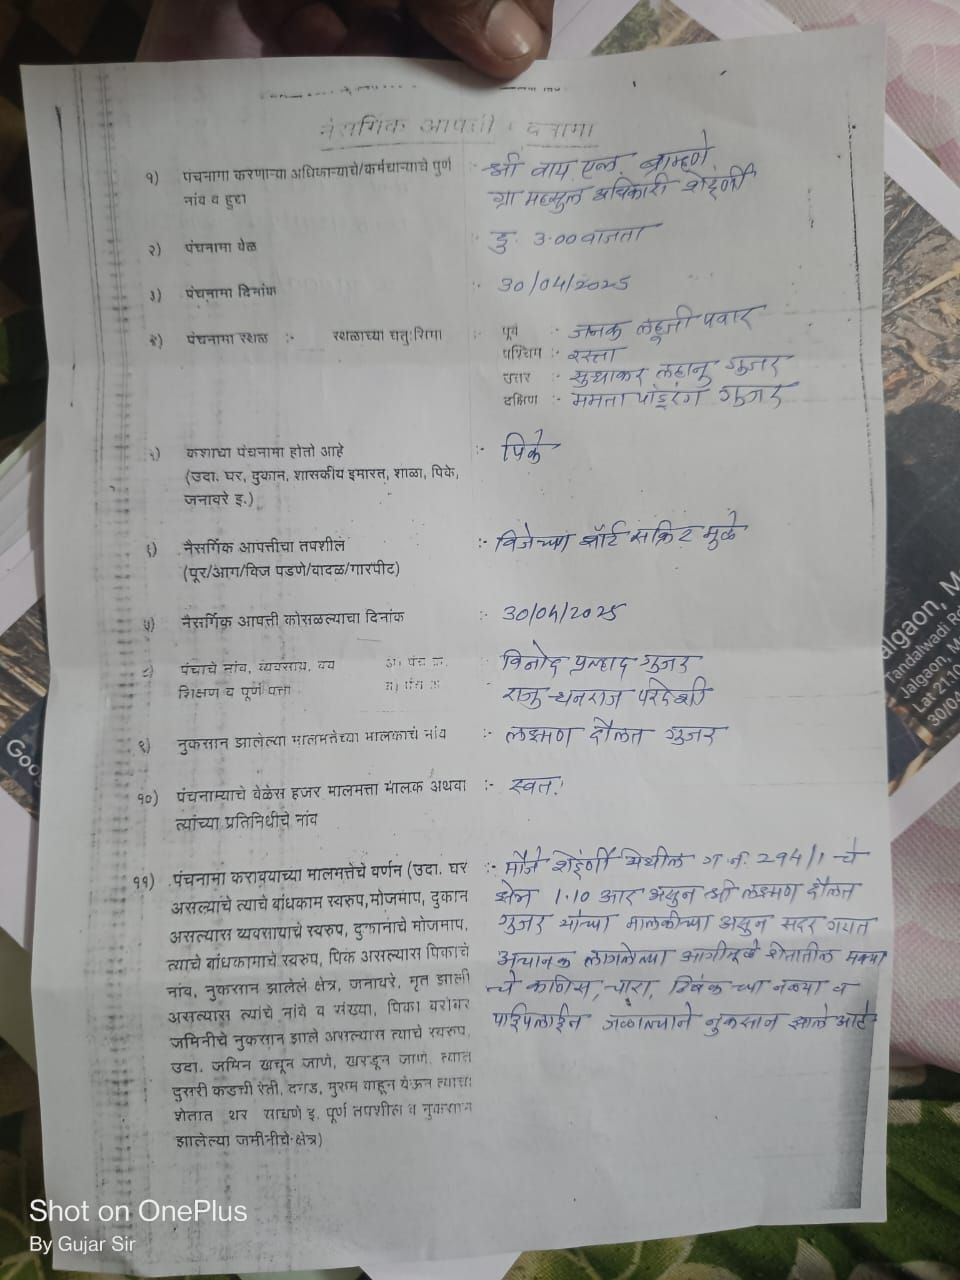 नैसर्गिक आपत्ती पंचनामा
१) पंचनामा करणाऱ्या अधिकाऱ्याचे/कर्मचाऱ्याचे पुर्ण :- श्री वाय एल ब्राम्हणे
नांव व हुद्दा ग्रा महसुल अधिकारी शेंदुर्णी
२) पंचनामा वेळ :- दु. 3.00 वाजता
३) पंचनामा दिनांक :- 30/04/2025
४) पंचनामा स्थळ :- स्थळाच्या चतु:सिमा पूर्व :- जनक लहूजी पवार
पश्चिम :- रस्ता
उत्तर :- सुधाकर लहानु गुजर
दक्षिण :- ममता पांडूरंग गुजर
५) कशाचा पंचनामा होतो आहे :- पिके
(उदा. घर, दुकान, शासकीय इमारत, शाळा, पिके,
जनावरे इ.)
६) नैसर्गिक आपत्तीचा तपशील :- विजेच्या शॉर्ट सर्किट मुळे
(पूर/आग/विज पडणे/वादळ/गारपीट)
७) नैसर्गिक आपत्ती कोसळल्याचा दिनांक :- 30/04/2025
८) पंचाचे नांव, व्यवसाय, वय :- विनोद प्रल्हाद गुजर
शिक्षण व पूर्ण पत्ता राजु धनराज परदेशी
९) नुकसान झालेल्या मालमत्तेच्या मालकाचे नांव :- लक्ष्मण दौलत गुजर
१०) पंचनाम्याचे वेळेस हजर मालमत्ता मालक अथवा :- स्वत:
त्यांच्या प्रतिनिधीचे नांव
११) पंचनामा करावयाच्या मालमत्तेचे वर्णन (उदा. घर :- मौजे शेंदुर्णी येथील ग नं. 294/1 चे
असल्यांचे त्याचे बांधकाम स्वरुप,मोजमाप, दुकान क्षेत्र 1.10 आर असुन श्री लक्ष्मण दौलत
असल्यास व्यवसायाचे स्वरुप, दुकानाचे मोजमाप, गुजर यांच्या मालकीच्या असुन सदर गटात
त्याचे बांधकामाचे स्वरुप, पिक असल्यास पिकाचे अचानक लागलेल्या आगीमुळे शेतातील मक्या
नांव, नुकसान झालेले क्षेत्र, जनावरे, मृत झाली चे कणिस, चारा, ठिबक च्या नळ्या व
असल्यास त्यांचे नांवे व संख्या, पिका बरोबर पाईपलाईन जळाल्याने नुकसान झाले आहे.
जमिनीचे नुकसान झाले असल्यास त्याचे स्वरुप,
उदा. जमिन खचून जाणे, खरडून जाणे, त्यात
दुसरी कडची रेती, दगड, मुरुम वाहून येऊन त्याचा
शेतात थर साचणे इ. पूर्ण तपशील व नुकसान
झालेल्या जमीनीचे क्षेत्र)
algaon, M
Tandalwadi Rd
Jalgaon, M
Lat 21.10
30/04
Goo
Shot on OnePlus
By Gujar Sir